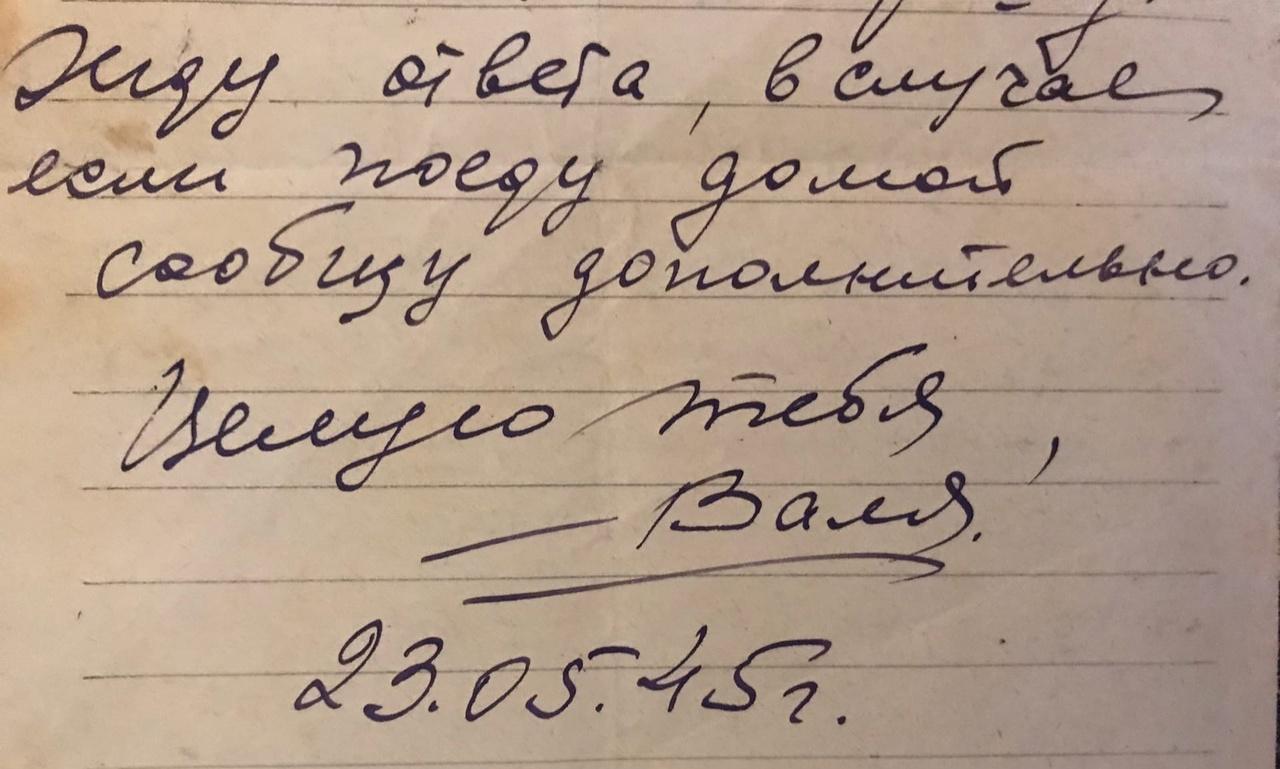 Жду ответа, в случае
если поеду домой
сообщу дополнительно.
Целую тебя,
— Валя.
23.05.45г.